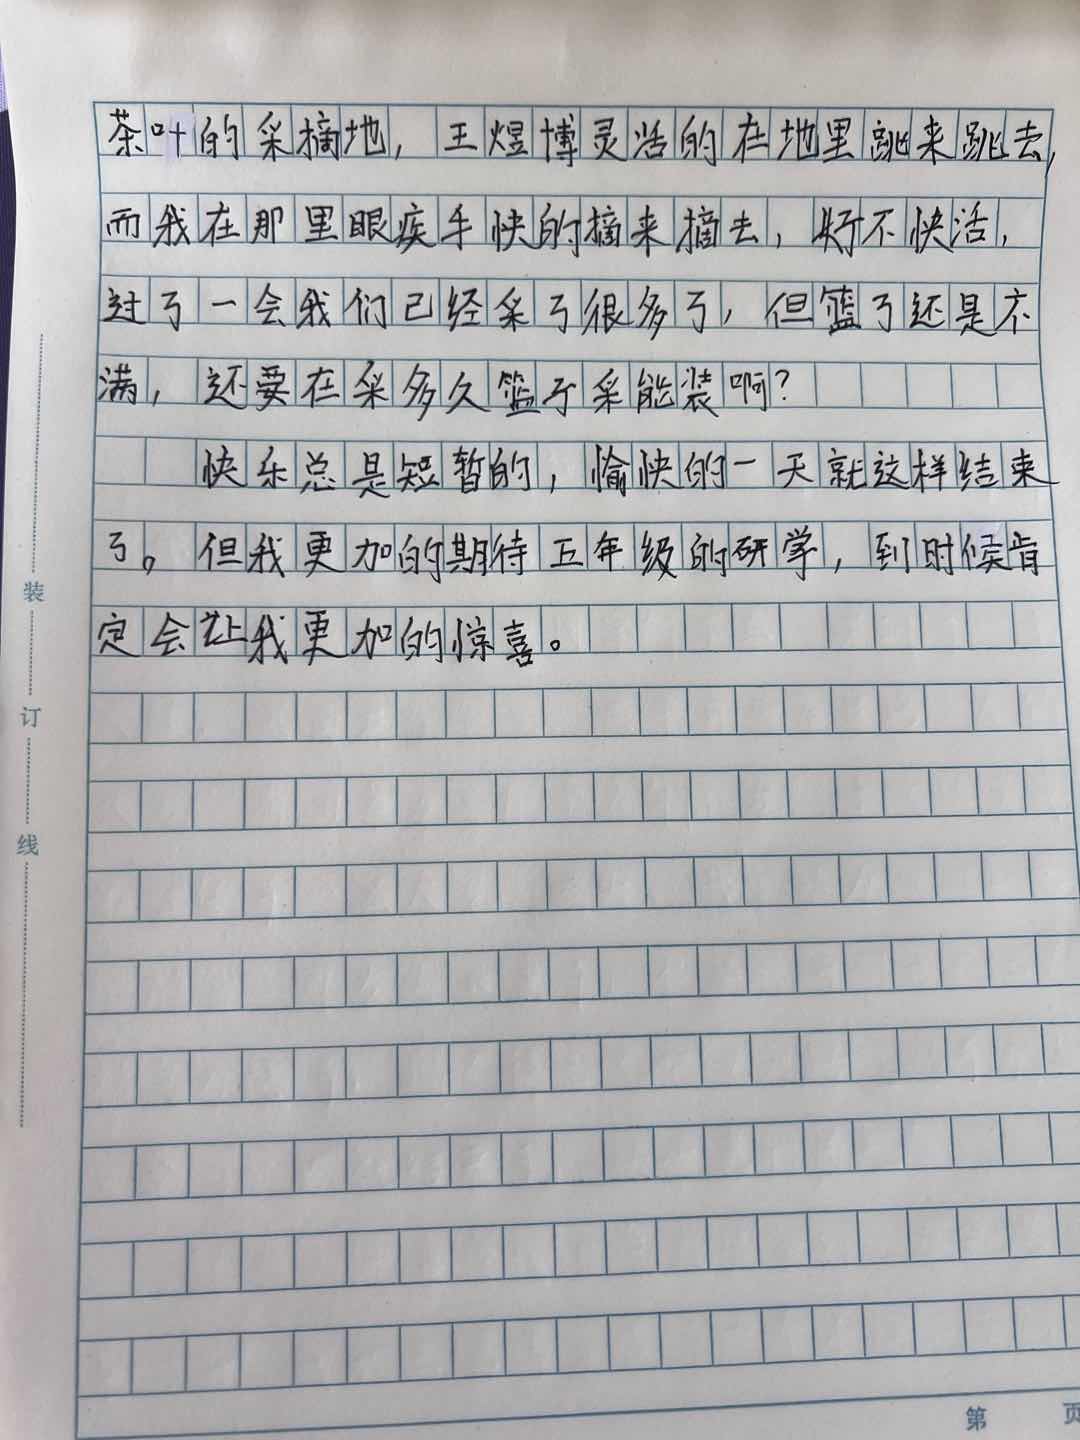 茶叶的采摘地，王煜博灵活的在地里跳来跳去，
而我在那里眼疾手快的摘来摘去，好不快活，
过了一会我们已经采了很多了，但篮了还是不
满，还要在采多久篮子采能装啊？
快乐总是短暂的，愉快的一天就这样结束
了。但我更加的期待五年级的研学，到时候肯
定会让我更加的惊喜。
装
订
线
第 页